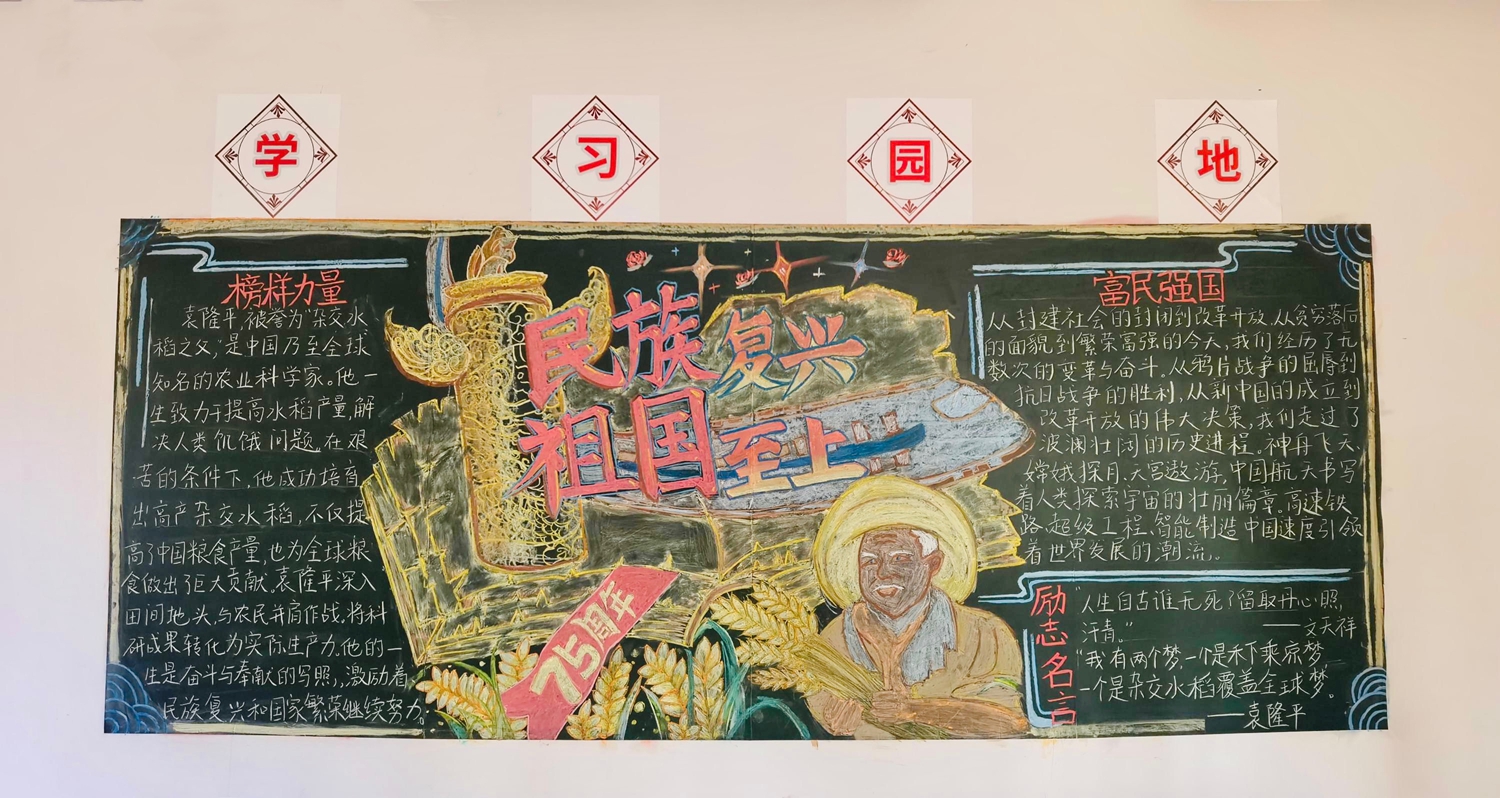 学 习 园 地
榜样力量
袁隆平,被誉为“杂交水
稻之父,”是中国乃至全球
知名的农业科学家。他一
生致力于提高水稻产量解
决人类饥饿问题。在艰
苦的条件下,他成功培育
出高产杂交水稻,不仅提
高了中国粮食产量,也为全球粮
食做出了巨大贡献。袁隆平深入
田间地头,与农民并肩作战,将科
研成果转化为实际生产力。他的一
生是奋斗与奉献的写照,激励着
民族复兴和国家繁荣继续努力。
民族复兴
祖国至上
75周年
富民强国
从封建社会的封闭到改革开放,从贫穷落后
的面貌到繁荣富强的今天,我们经历了九
数次的变革与奋斗。从鸦片战争的屈辱到
抗日战争的胜利,从新中国的成立到
改革开放的伟大决策,我们走过了
波澜壮阔的历史进程。神舟飞天,
嫦娥探月,天宫遨游,中国航天书写
着人类探索宇宙的壮丽篇章。高速铁
路、超级工程、智能制造中国速度引领
着世界发展的潮流。
励志名言
“人生自古谁无死?留取丹心照
汗青。”
——文天祥
“我有两个梦,一个是禾下乘凉梦
一个是杂交水稻覆盖全球梦。
——袁隆平